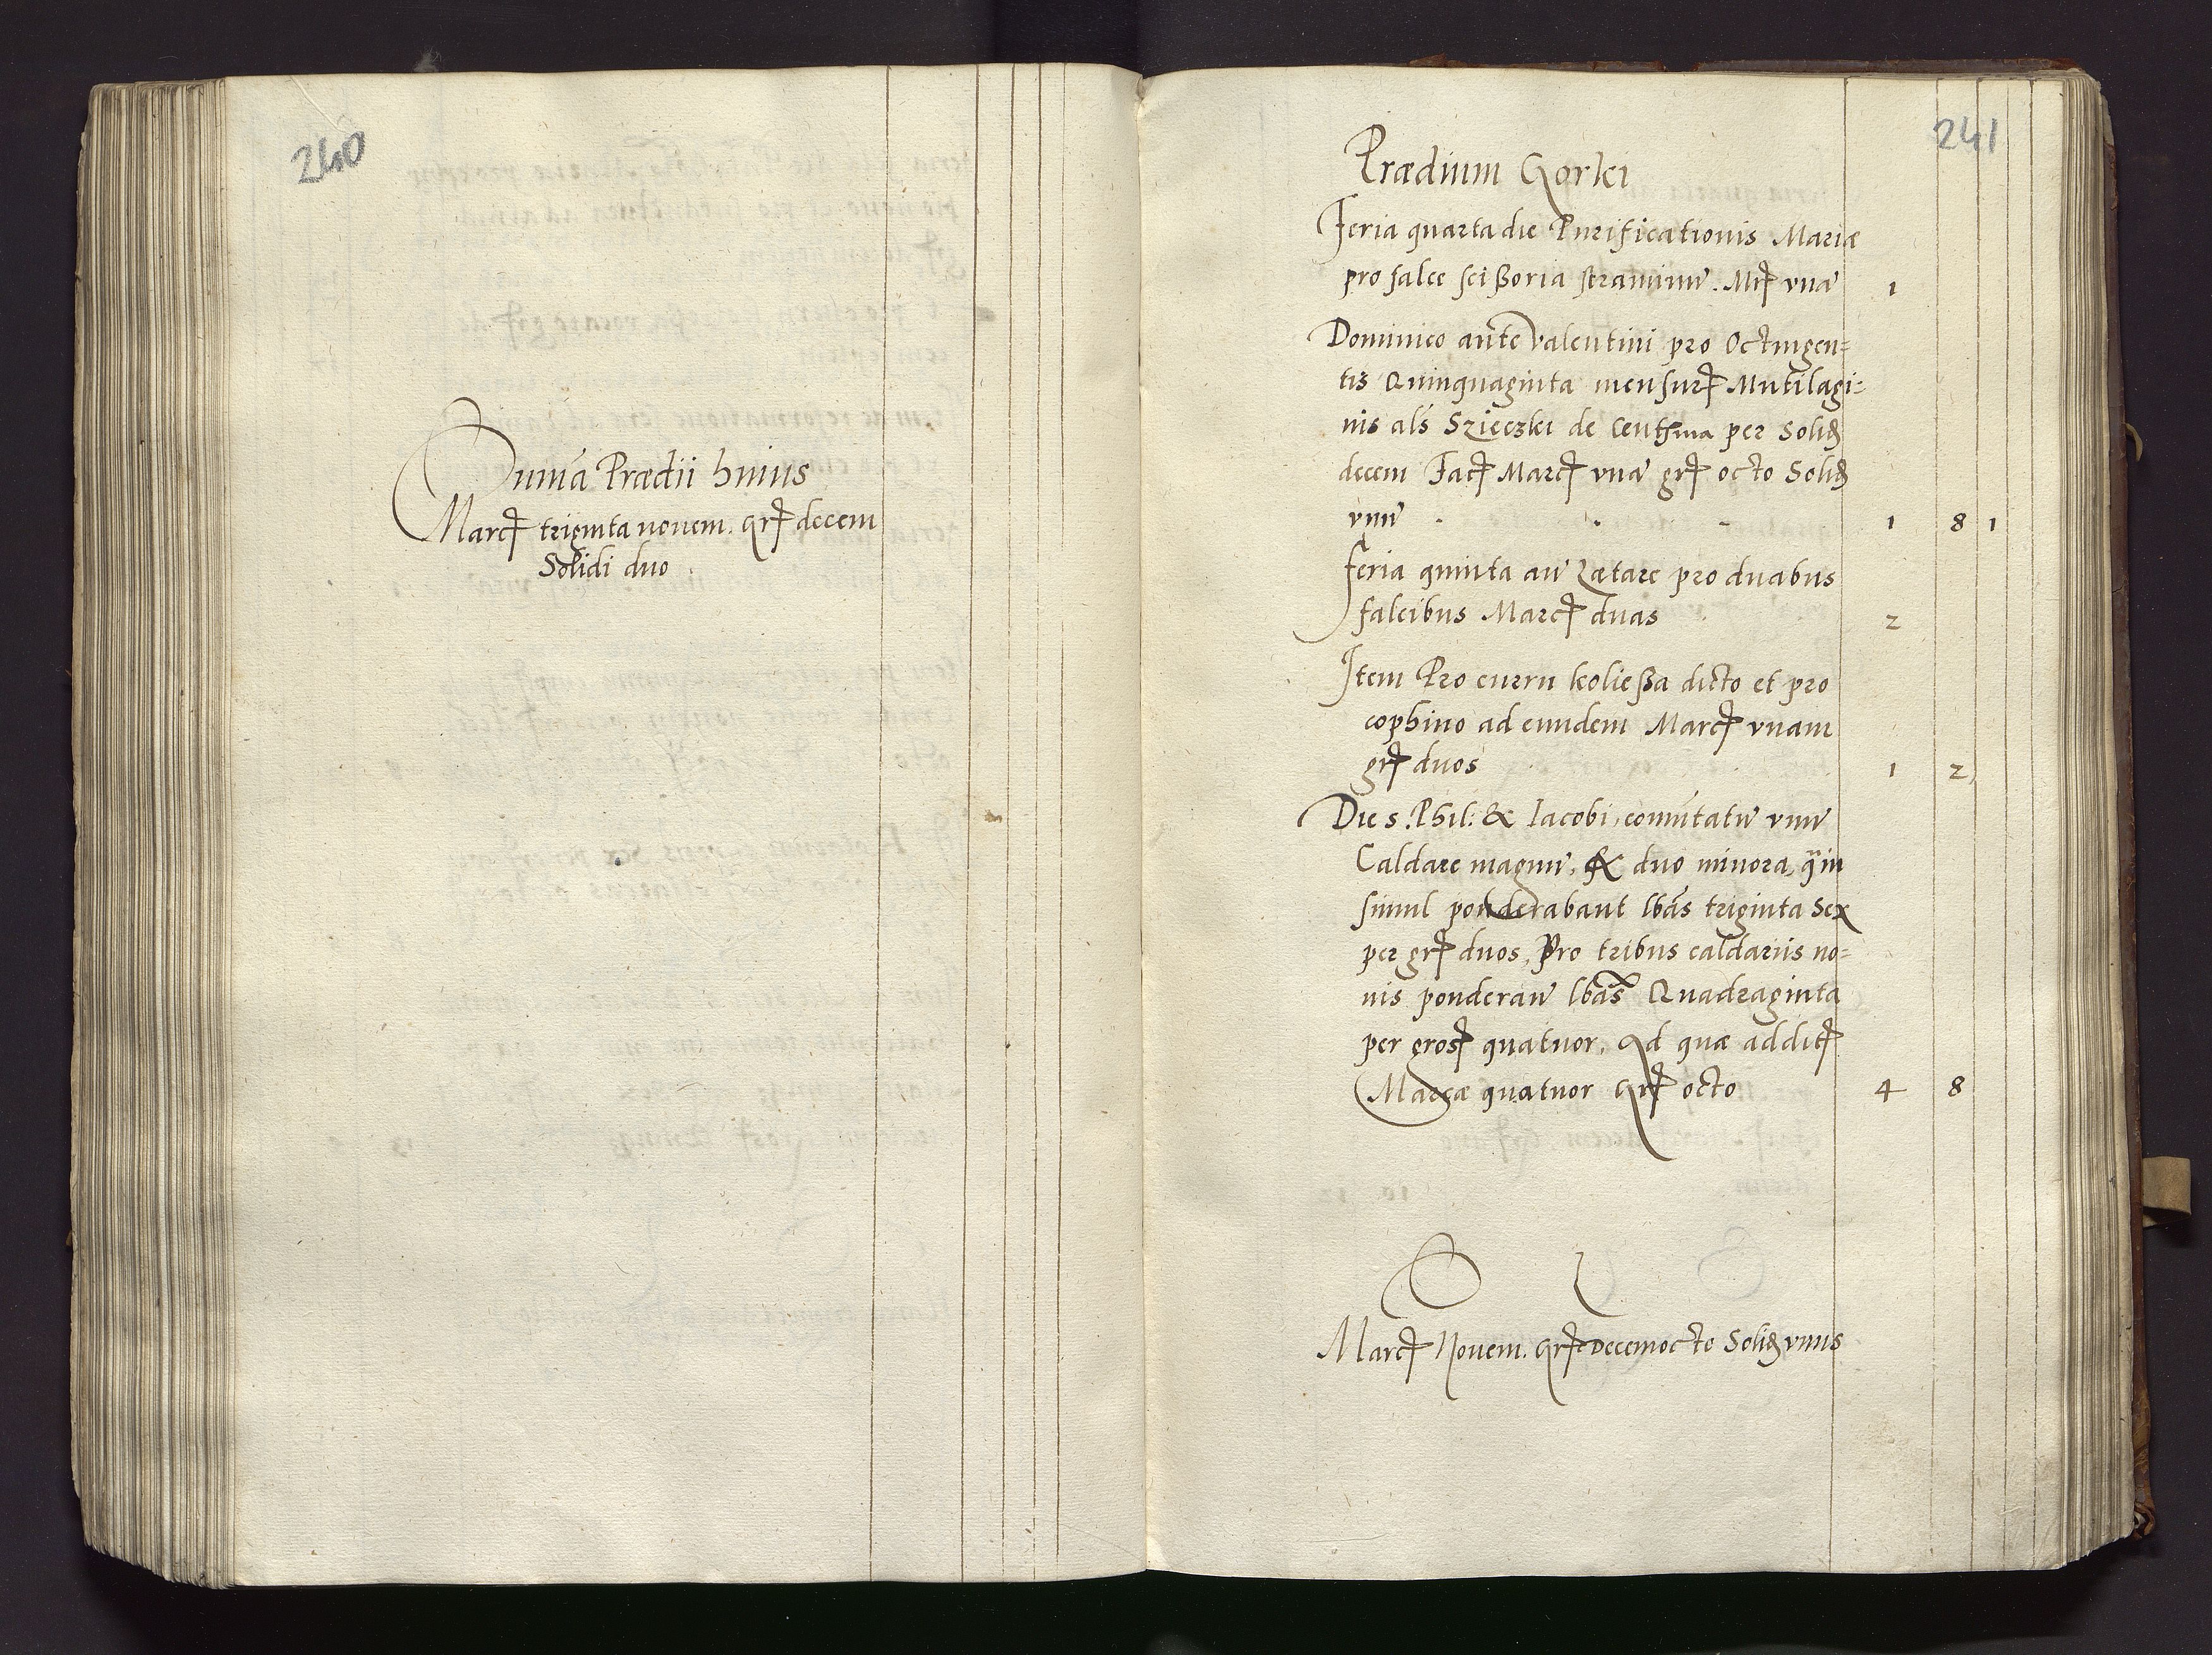 240
Sum̄a Prædii huius
Marcꝭ triginta nouem. Grꝭ decem
Solidi duo
241
Prædium Gorki
Feria quarta die Purificationis Mariæ
pro falce scißoria straminū. Mrꝭ vnā 1
Dominico ante Valentini pro Octingen=
tis Quinquaginta mensurꝭ Mutilagi=
nis als Szieczki de Centhna per Solid
decem Facꝭ Marcꝭ vnā grꝭ octo Solid
vnū 1 8 1
Feria quinta an̄ Lætare pro duabus
falcibus Marcꝭ duas 2
Item Pro curru koließa dicto et pro
cophino ad eundem Marcꝭ vnam
grꝭ duos 1 2
Die s. Phil: & Iacobi, com̄utatū vnū
Caldare magnū, & duo minora, q̄ in
simul ponderabant lbās triginta Sex
per grꝭ duos, Pro tribus caldariis no=
uis ponderan̄ lbās Quadraginta
per grosꝭ quatuor. Ad quæ additꝭ
Marcæ quatuor Grꝭ octo 4 8
Marcꝭ Nouem. Grꝭ Decemocto Solid vnus